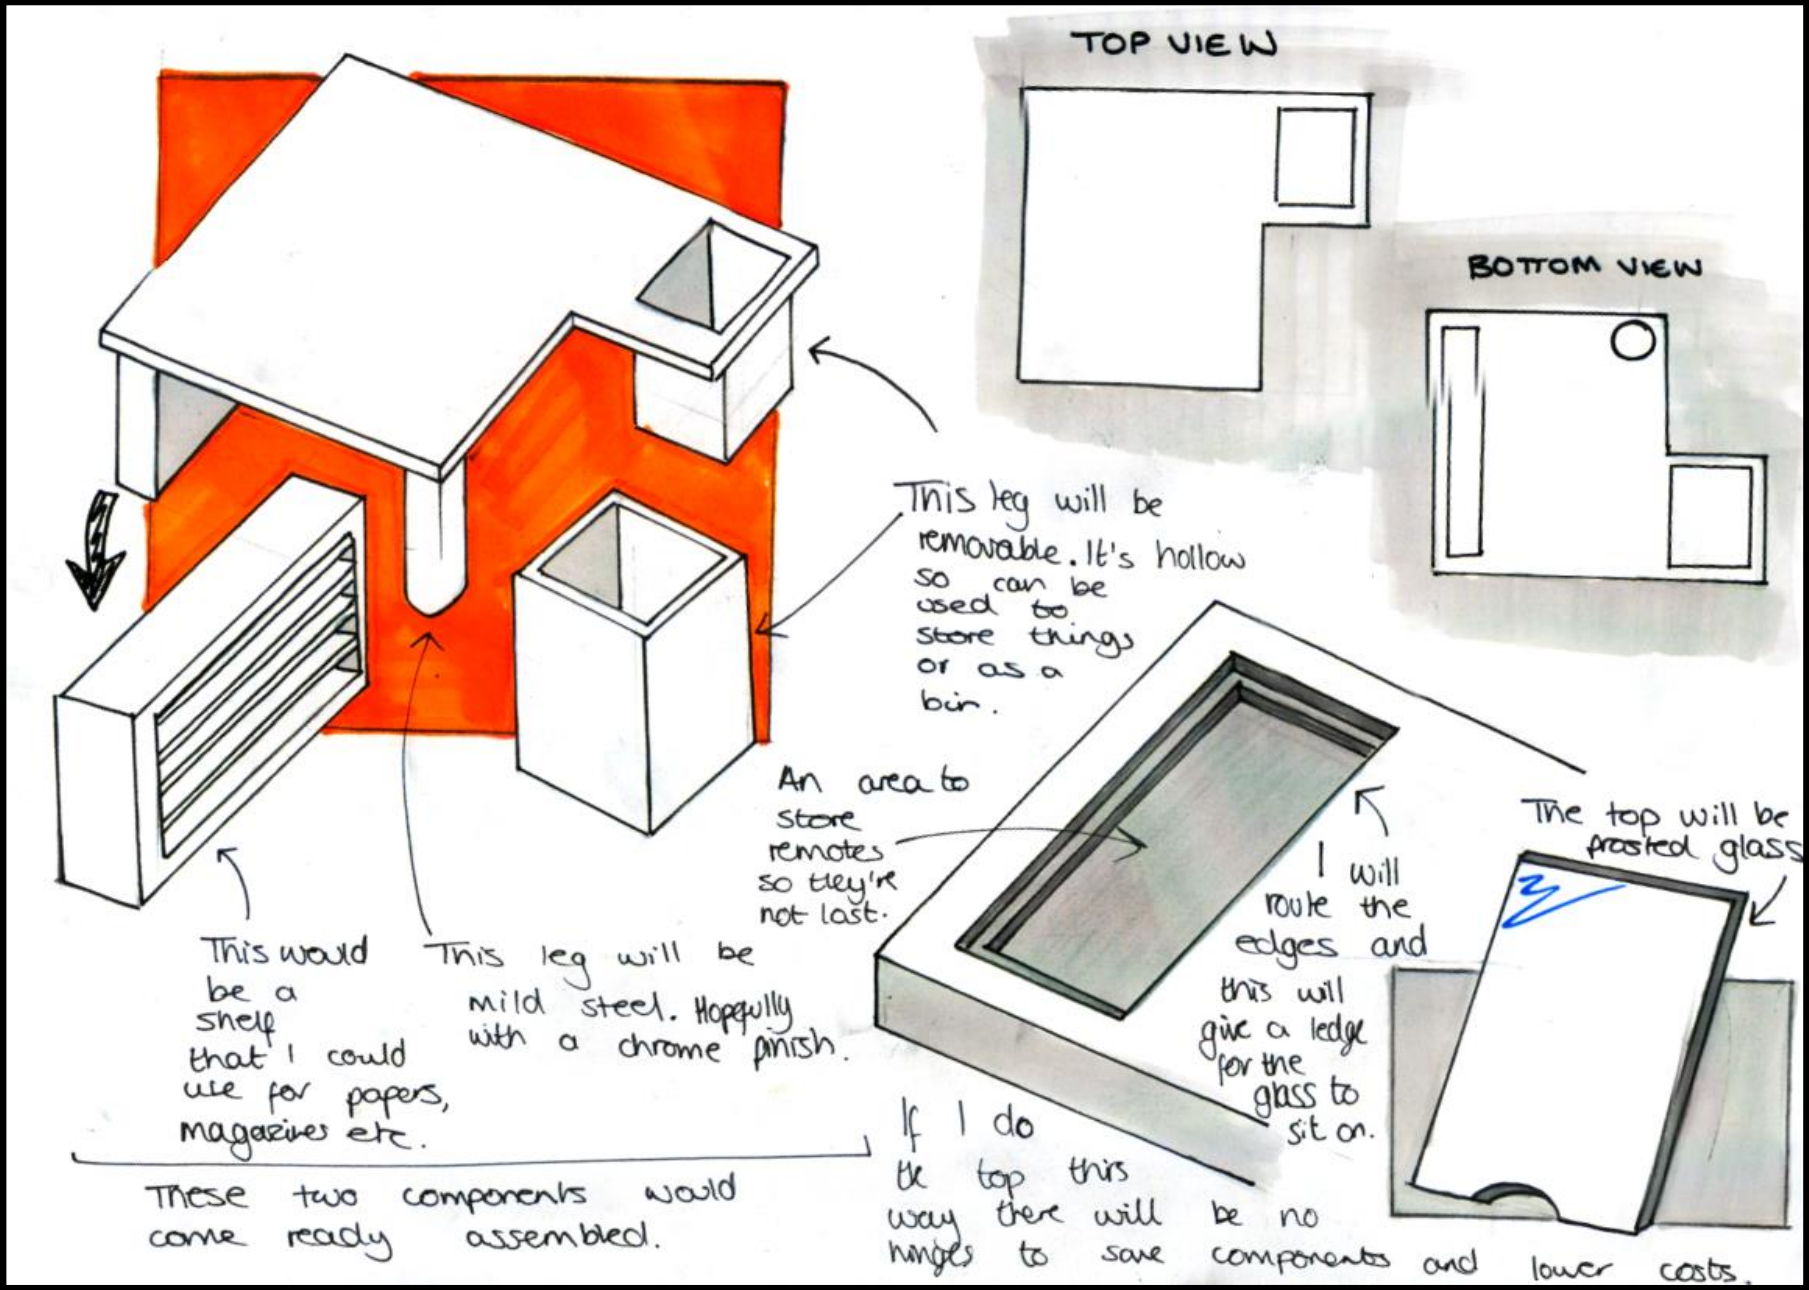 TOP VIEW
BOTTOM VIEW
This leg will be
removable. It's hollow
so can be
used to
store things
or as a
bin.
An area to
store
remotes
so they're
not lost.
I will
route the
edges and
this will
give a ledge
for the
glass to
sit on.
The top will be
frosted glass
This would
be a
shelf
that I could
use for papers,
magazines etc.
This leg will be
mild steel. Hopefully
with a chrome finish.
These two components would
come ready assembled.
If I do
the top this
way there will be no
hinges to save components and lower costs.